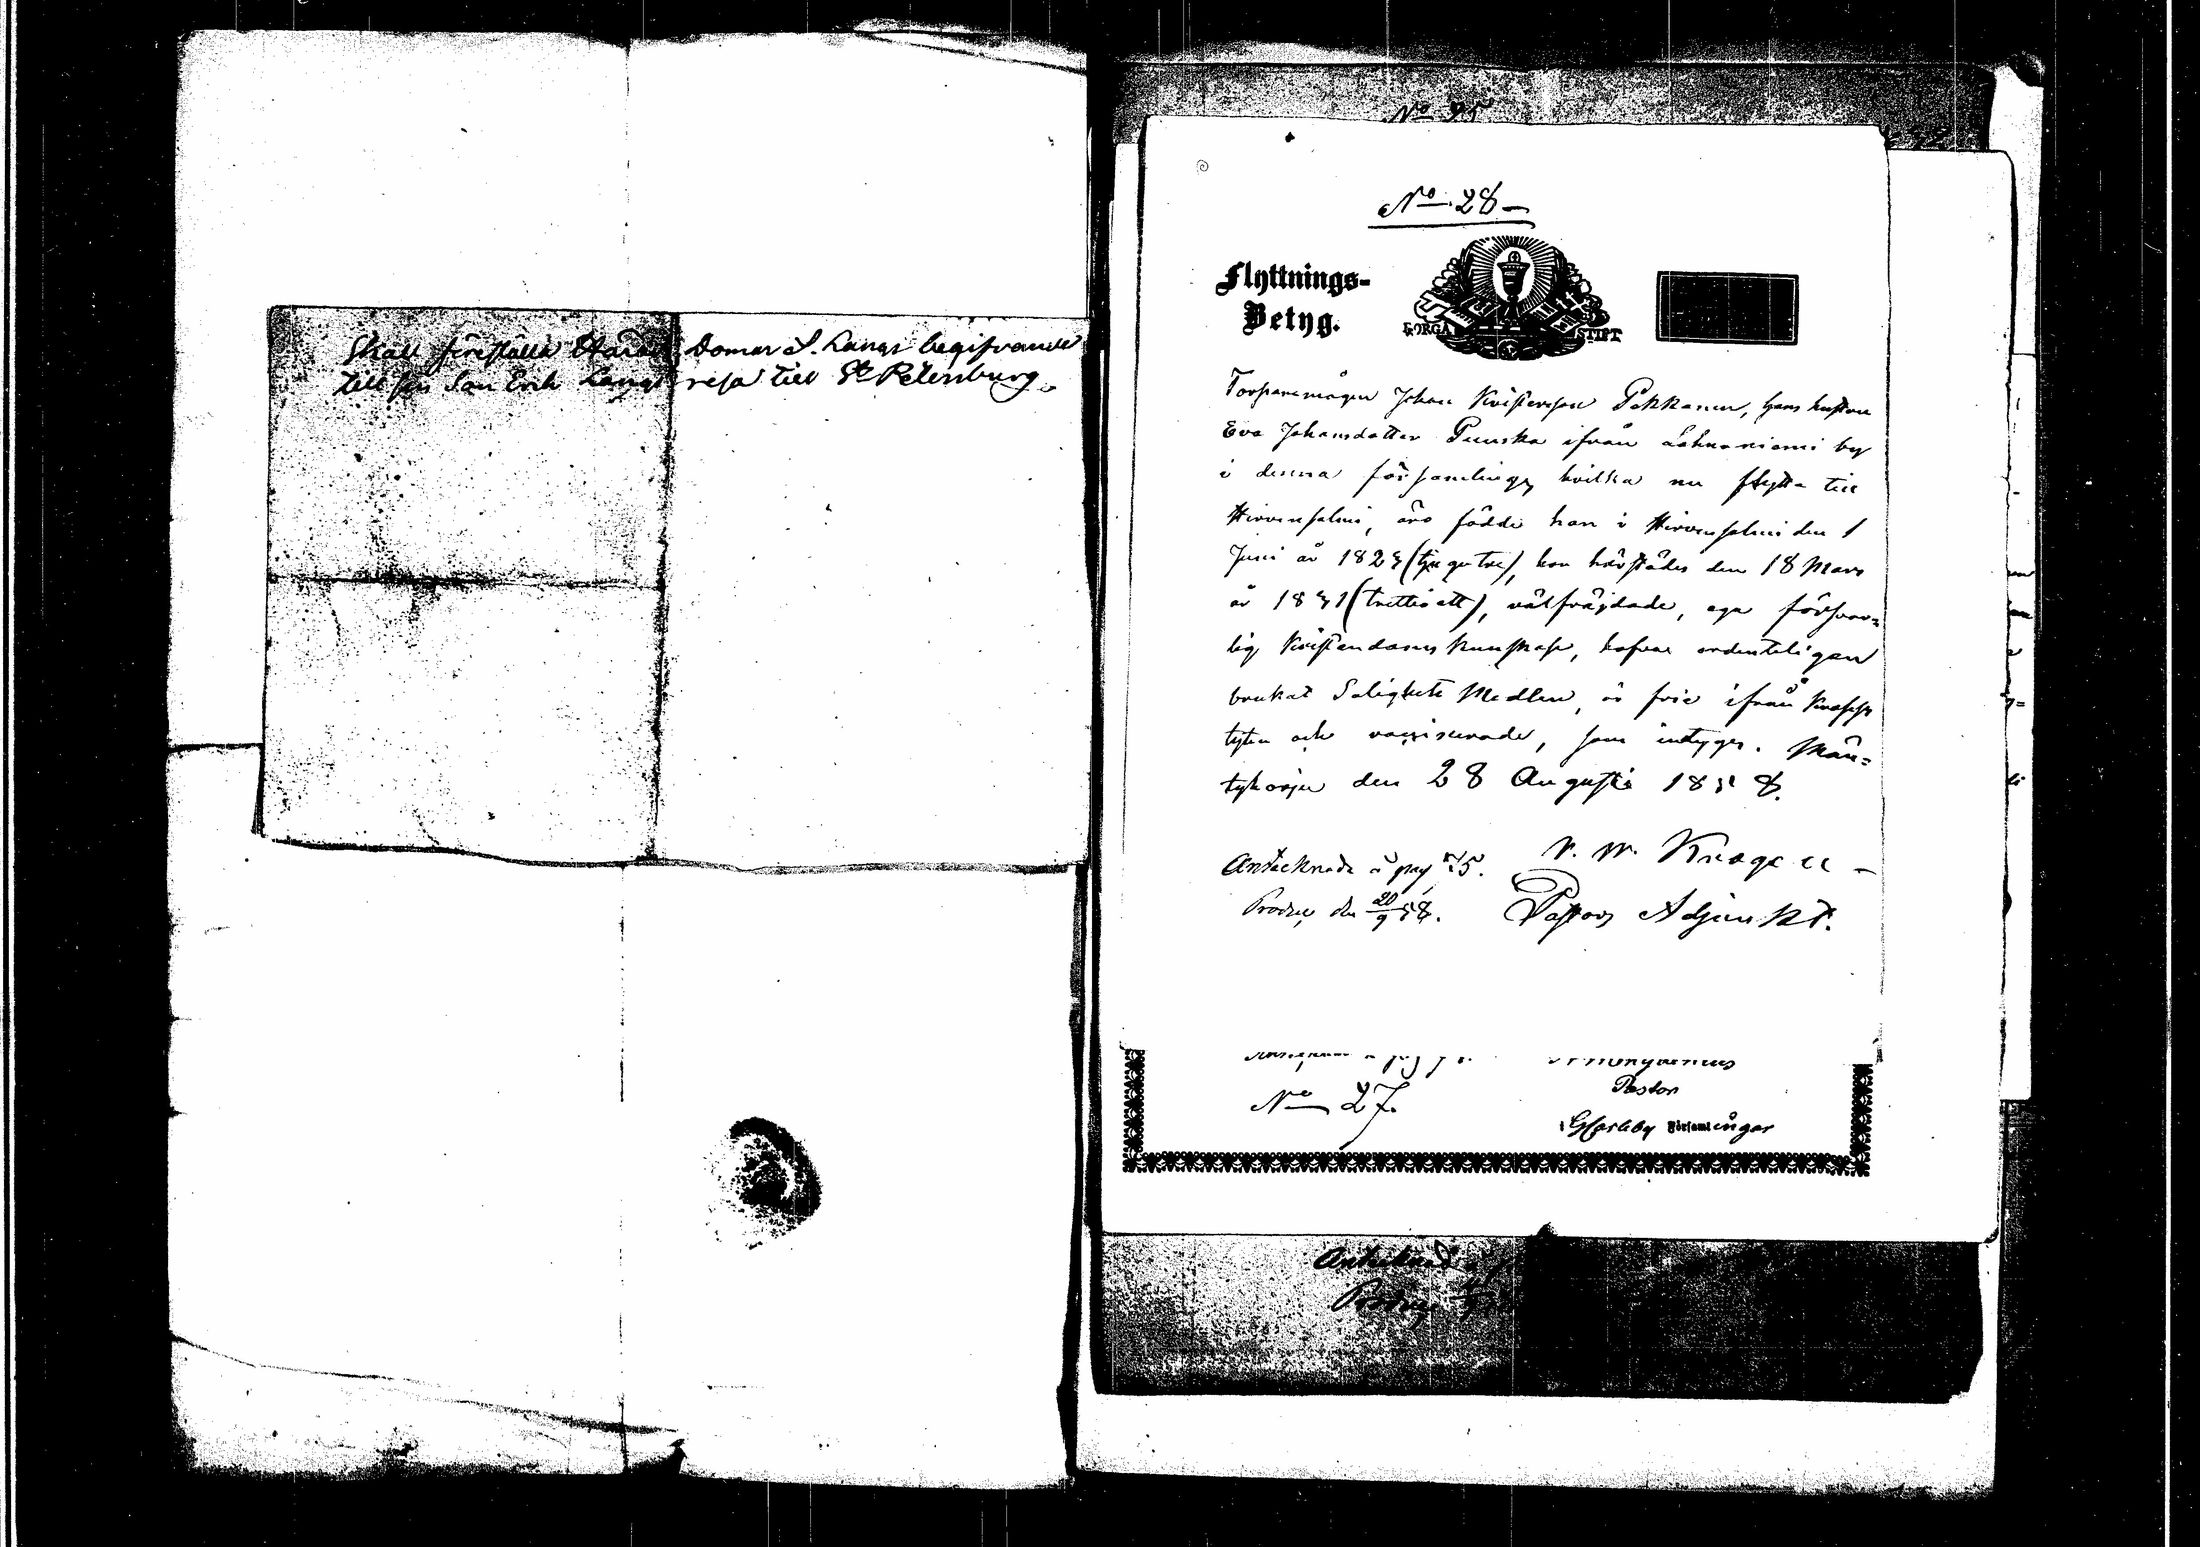 Skall föreställa Härads Domar J. Langs begifvande
till sin Son Erik Langs resa till St Petersburg.
No 25
No 28
Flyttnings-
Betyg.
BORGÅ STIFT
Torparemågen Johan Kristersson Pekkanen, hans hustru
Eva Johansdotter Puuska ifrån Lahnaniemi by
i denna församling, hvilka nu flytta till
Hirvensalmi, äro födde han i Hirvensalmi den 1
Juni år 1823 (tjugutre), hon härstädes den 18 Mars
år 1831 (trettioett), välfräjdade, ega försvar=
lig Kristendoms kunskap, hafva ordenteligen
brukat Salighets Medlen, är frie ifrån Kropps
lyten och vaccinerade, som intygas. Män=
tyharju den 28 Augusti 1858.
Antecknade å pag 75.
Produc. den 20/9 58.
Pastors Adjunkt.
No 27.
Pastor
i församlingar
Antecknad å
Produc